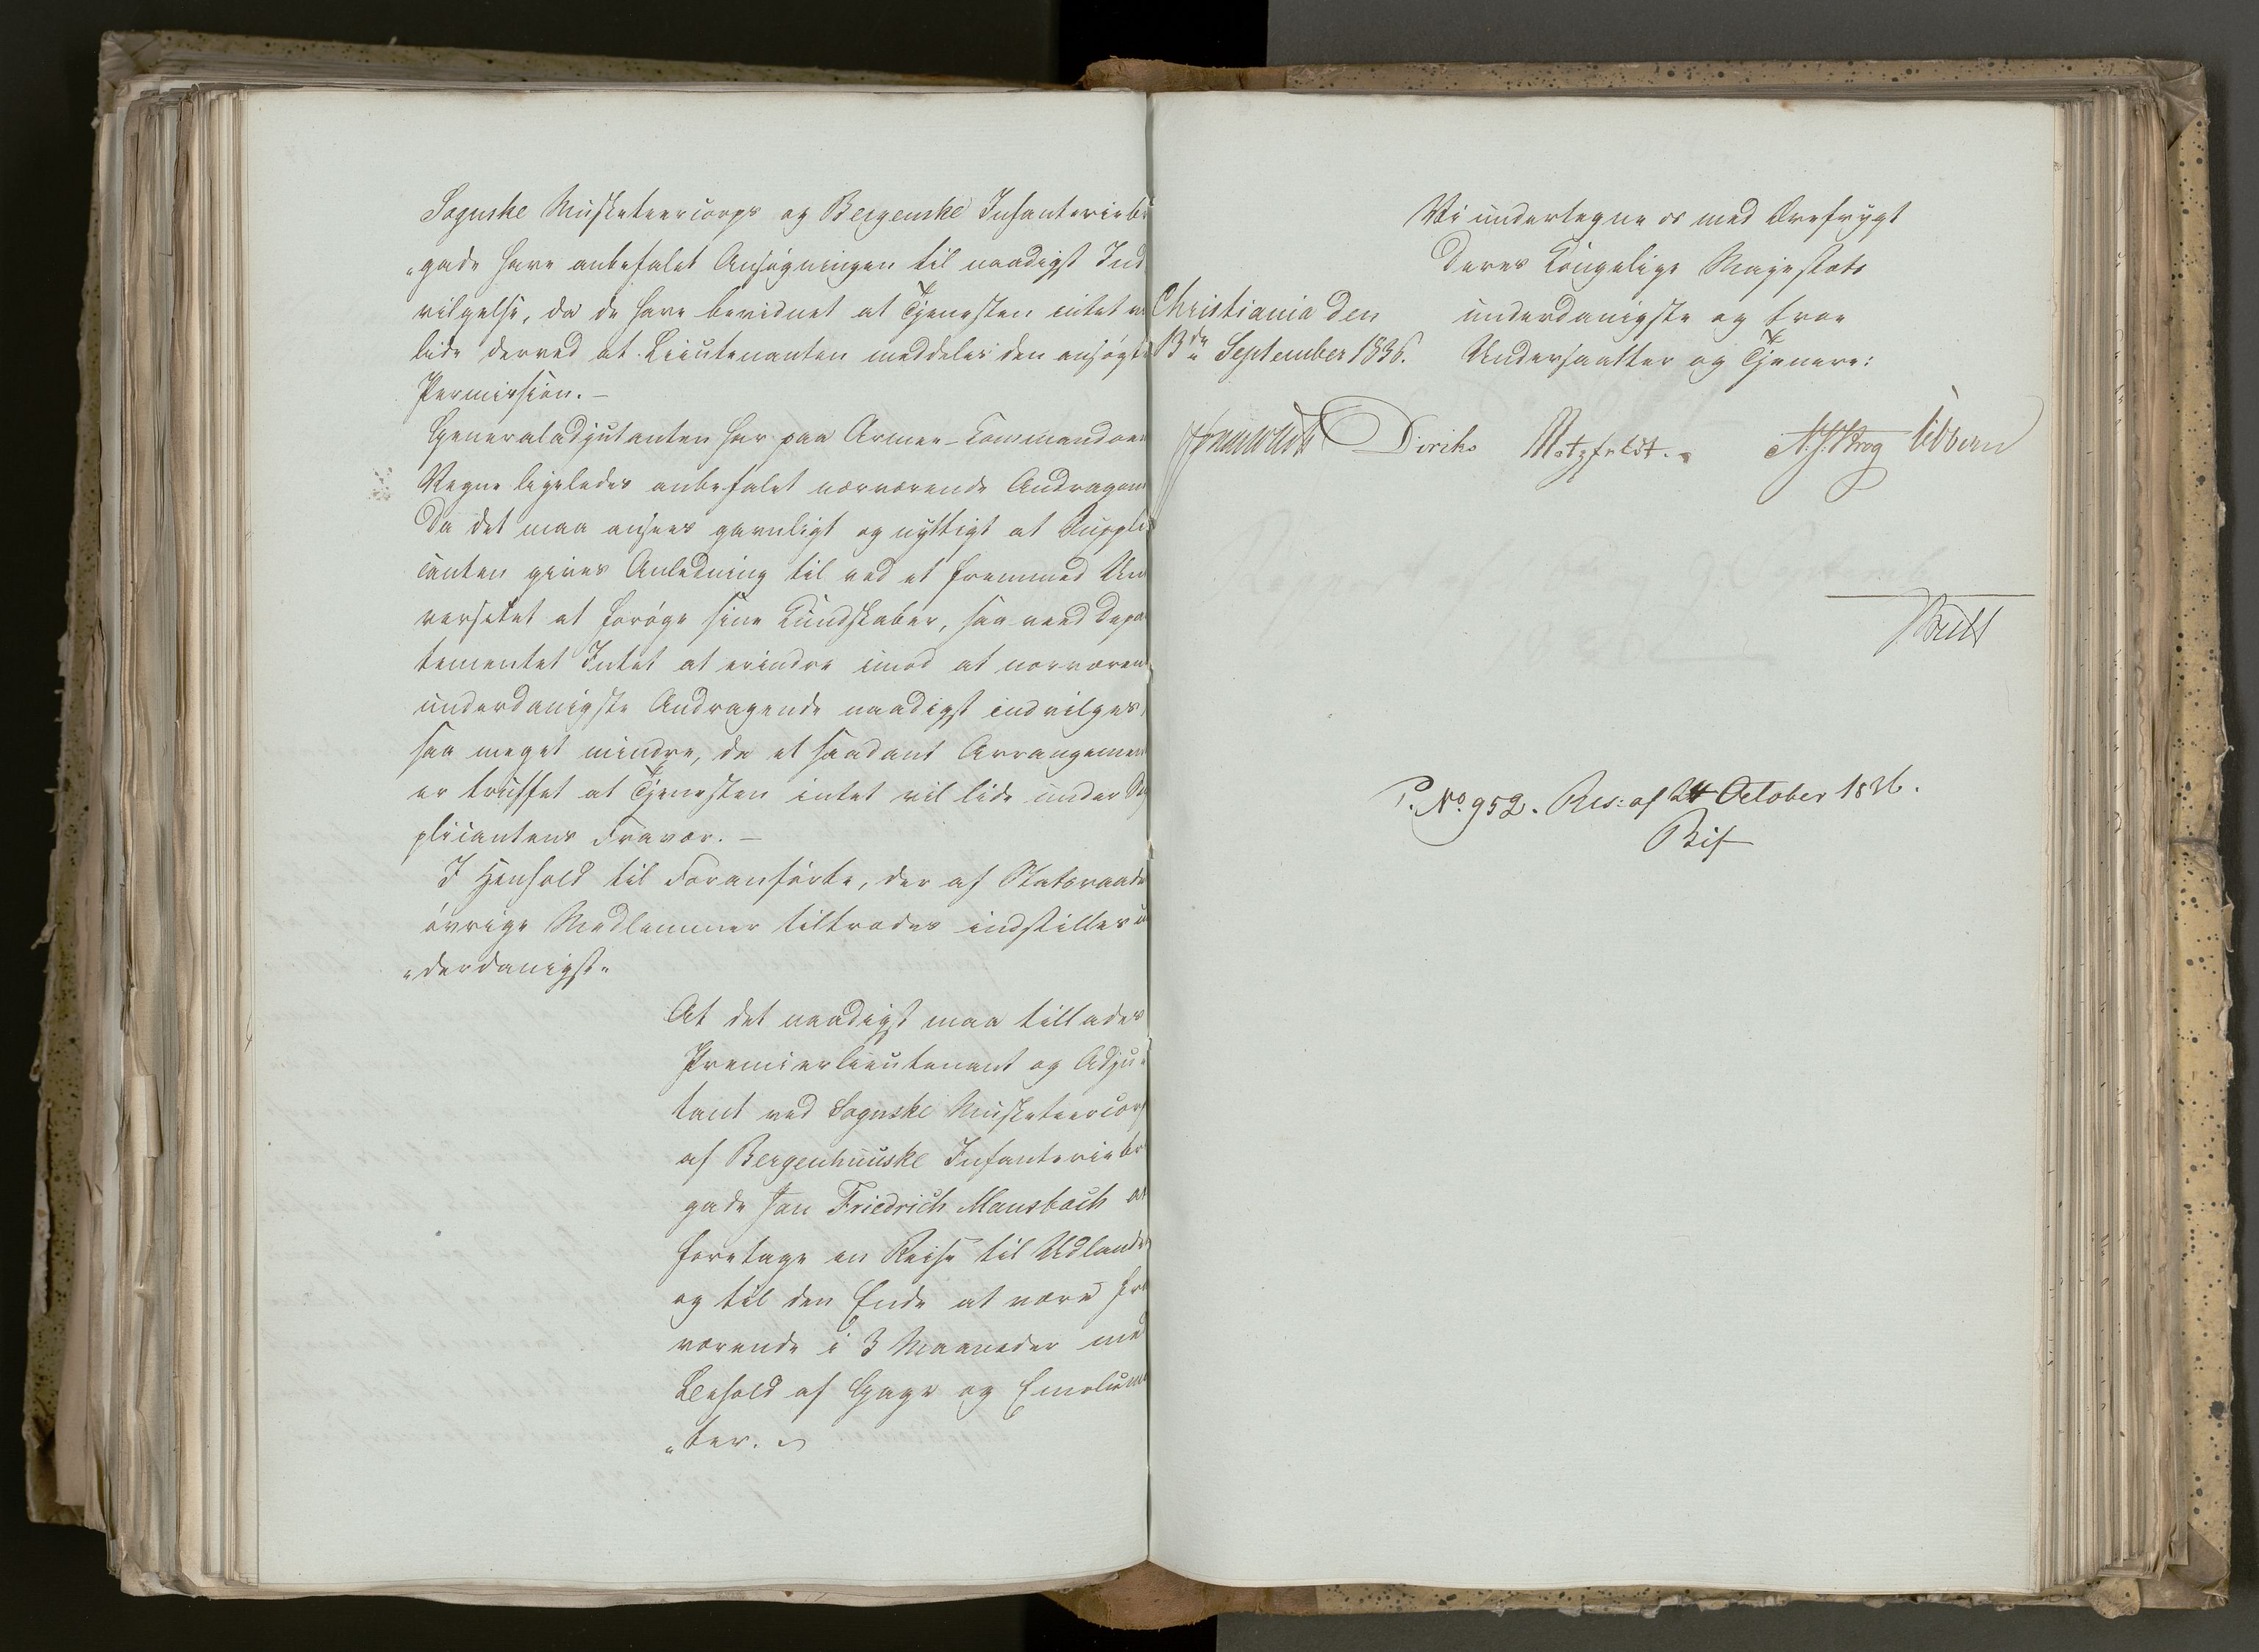 Sognske Musketeercorps og Bergenske Infanteriebri
„gade have anbefalet Ansøgningen til naadigst Ind
vilgelse, da de have bevidnet at Tjenesten intet vil
lide derved at Lieutenanten meddeles den ansøgte
Permission. —
Generaladjutanten har paa Armee-Commandoens
Vegne ligeledes anbefalet nærværende Andragende
Da det maa ansees gavnligt og nyttigt at Suppli
canten gives Anledning til ved et fremmed Uni
versitet at forøge sine Kundskaber, saa veed Depar
tementet Intet at erindre imod at nærværende
underdanigste Andragende naadigst indvilges,
saa meget mindre, da et saadant Arrangement
er truffet at Tjenesten intet vil lide under Sup
plicantens Fravær. —
I Henhold til Foranførte, der af Statsraadets
øvrige Medlemmer tiltrædes indstilles un
„derdanigst„
At det naadigst maa tillades
Premierlieutenant og Adju„
tant ved Sognske Musketeercorps
af Bergenhuuske Infanteriebri
gade Jan Friedrich Mansbach at
foretage en Reise til Udlandet
og til den Ende at være fra
værende i 3 Maaneder med
Behold af Gage og Emolumen
„ter.
Vi undertegne os med Ærefrygt
Deres Kongelige Majestæts
Christiania den underdanigste og troe
13de September 1836. Undersaatter og Tjenere:
Diriks Motzfeldt. N. J. Krog Vibbern
P. No. 952. Res: af 24 October 1836.